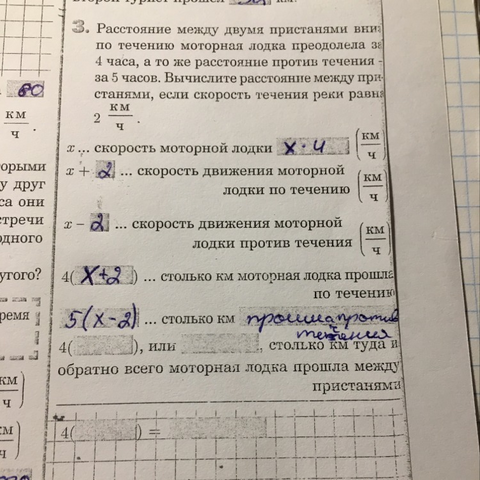 второй турист прошёл км.
3. Расстояние между двумя пристанями вниз
по течению моторная лодка преодолела за
4 часа, а то же расстояние против течения -
за 5 часов. Вычислите расстояние между при-
станями, если скорость течения реки равна
2 км/ч.
x ... скорость моторной лодки x · 4 (км/ч)
x + 2 ... скорость движения моторной
лодки по течению (км/ч)
x − 2 ... скорость движения моторной
лодки против течения (км/ч)
4( x+2 ) ... столько км моторная лодка прошла
по течению
5(x−2) ... столько км прошла против
течения
4( ), или , столько км туда и
обратно всего моторная лодка прошла между
пристанями
4( ) =
80
км/ч.
орыми
у друг
са они
стречи
одного
угого?
ремя
км/ч)
км/ч)